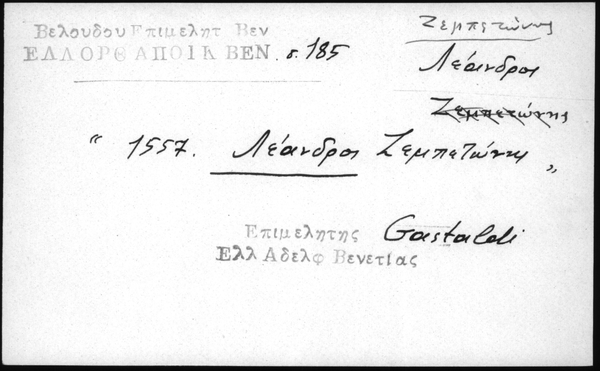 Βελουδου Επιμελητ Βεν
ΕΛΛΟΡΘ ΑΠΟΙΚ ΒΕΝ. σ. 185
Ζεμπετώνης
Λέανδρος
Ζεμπετώνης
" 1557. Λέανδρος Ζεμπετώνης "
Επιμελητης Gastaldi
Ελλ Αδελφ Βενετίας